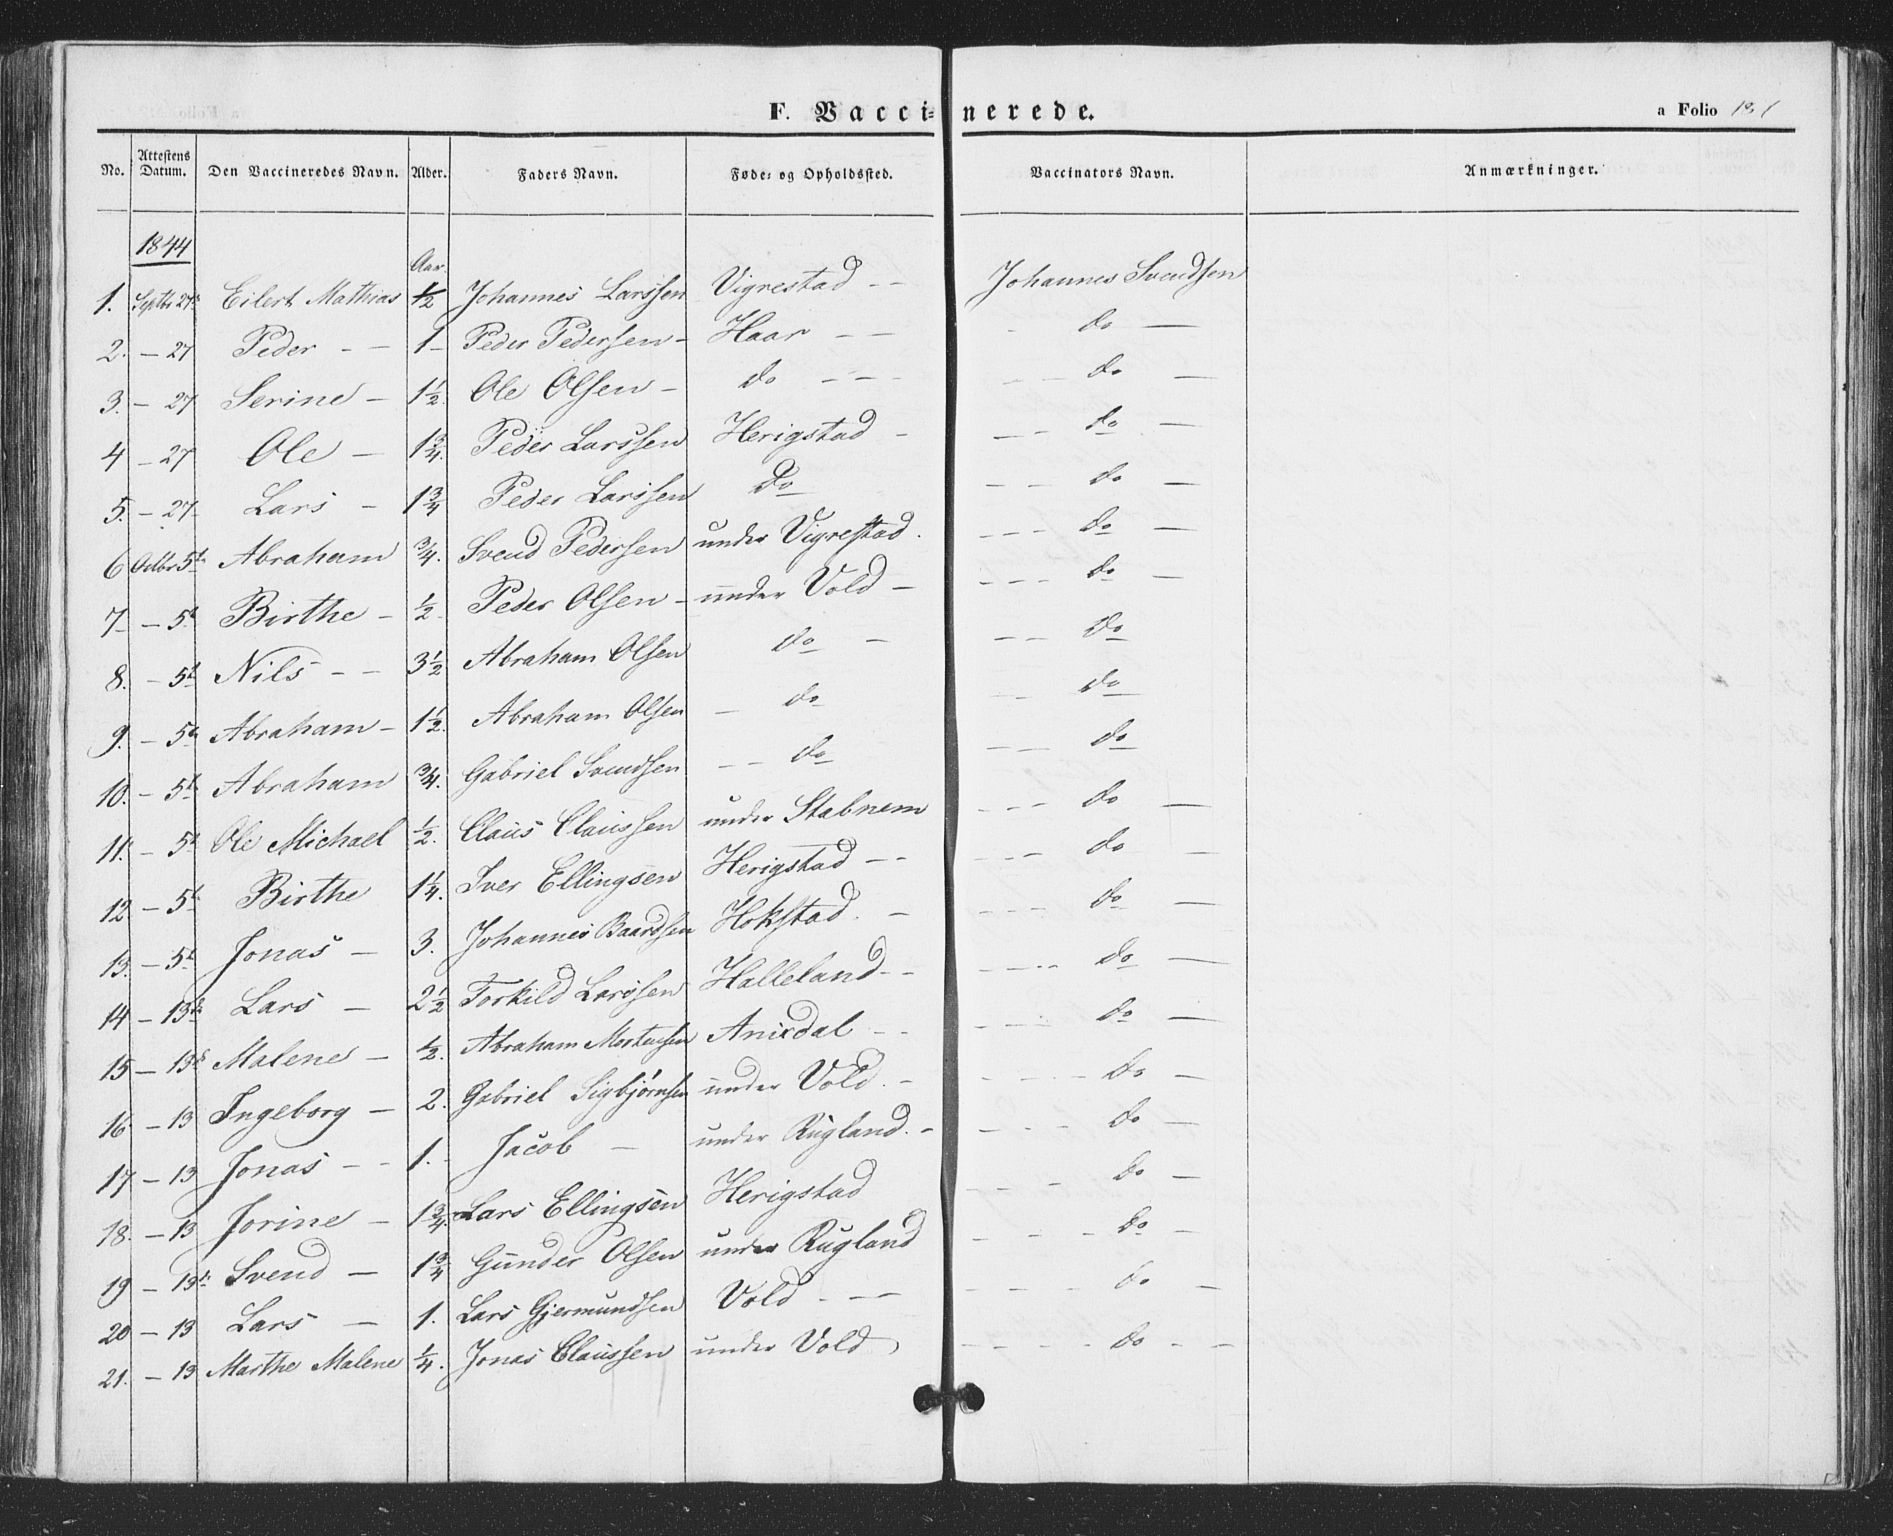 F. Vaccinerede.
a Folio 181
No. Attestens Datum. Den Vaccineredes Navn. Alder. Faders Navn. Føde= og Opholdssted. Vaccinators Navn. Anmærkninger.
1844
Aar.
1. Septbr 27de Eilert Mathias 1/2 Johannes Larssen Vigrestad - - Johannes Svendsen
2. - 27 Peder - - 1 - Peder Pedersen - Haar - - - do -
3. - 27 Serine - 1 1/2 Ole Olsen - do - - - - - do -
4 - 27 Ole - 1 3/4. Peder Larssen Herigstad - - - do -
5. - 27 Lars - 1 3/4 Peder Larssen Do - - do -
6 Octbr 5t Abraham 3/4. Svend Pedersen under Vigrestad. - - - do -
7 - 5t Birthe - 1/2 Peder Olsen - under Vold - - - - do -
8. - 5t Nils - - 3 1/2 Abraham Olsen do - - - do
9. - 5t Abraham - 1 1/2. Abraham Olsen - do - - do
10. - 5t Abraham 3/4. Gabriel Svendsen - - do - - do
11. - 5t Ole Michael 1/2. Claus Claussen under Stabnem - - - do -
12 - 5t Birthe 1 1/4. Iver Ellingsen Herigstad - - - - - do -
13. - 5t Jonas - 3. Johannes Baardsen Hokstad. - - - - do -
14 - 13de Lars - 2 1/2 Torkild Larssen Halleland - - - - - - do -
15 - 13de Malene - 1/2. Abraham Mortensen Anisdal - - - - - do -
16 - 13 Ingeborg - 2. Gabriel Sigbjørnsen under Vold. - - - - - do -
17 - 13 Jonas - - 1. - Jacob - under Rugland. - - - - do -
18. - 13 Jorine - 1 3/4 Lars Ellingsen Herigstad - - - do -
19 - 13de Svend - 1 3/4 Gunder Olsen under Rugland - - - do -
20 - 13 Lars - 1. Lars Gjermundsen Vold - - - - - - - do -
21. - 13 Marthe Malene 1/4. Jonas Claussen under Vold - - - - do - -